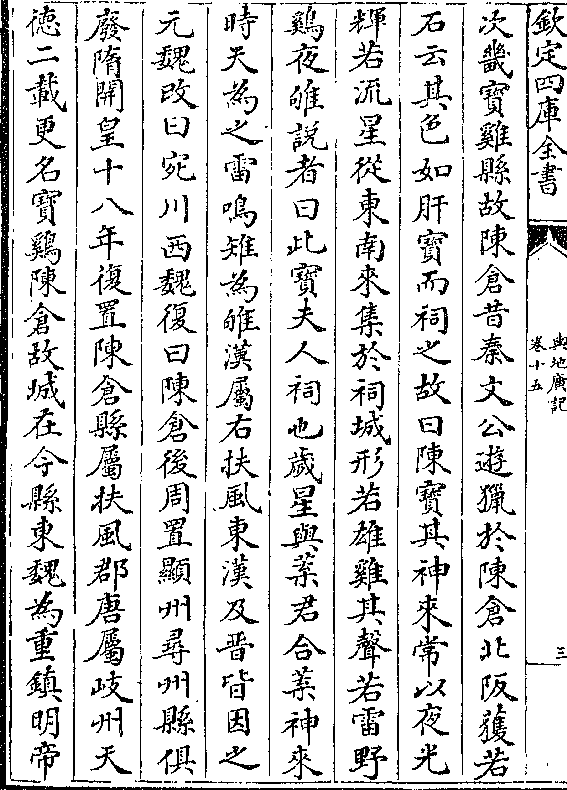 欽定四庫全書
輿地廣記
卷十五
三
次畿寶雞縣故陳倉昔秦文公遊獵於陳倉北阪獲若
石云其色如肝寶而祠之故曰陳寶其神來常以夜光
輝若流星從東南來集於祠城形若雄雞其聲若雷野
鷄夜雊說者曰此寶夫人祠也歲星與葉君合葉神來
時天為之雷鳴雉為雊漢屬右扶風東漢及晉皆因之
元魏改曰宛川西魏復曰陳倉後周置顯州尋州縣俱
廢隋開皇十八年復置陳倉縣屬扶風郡唐屬岐州天
德二載更名寶鷄陳倉故城在今縣東魏為重鎮明帝